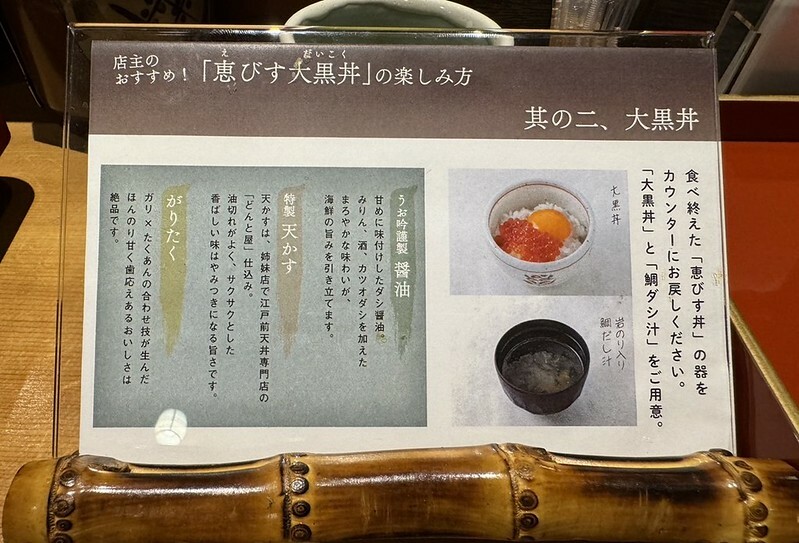 店主の
おすすめ!
「恵びす大黒丼」の楽しみ方
え
だいこく
其の二、大黒丼
食べ終えた「恵びす丼」の器を
カウンターにお戻しください。
「大黒丼」と「鯛ダシ汁」をご用意。
大黒丼
岩のり入り
鯛だし汁
うお吟謹製 醤油
甘めに味付けしたダシ醤油。
みりん、酒、カツオダシを加えた
まろやかな味わいが、
海鮮の旨みを引き立てます。
特製 天かす
天かすは、姉妹店で江戸前天丼専門店の
「どんと屋」仕込み。
油切れがよく、サクサクとした
香ばしい味はやみつきになる旨さです。
がりたく
ガリ×たくあんの合わせ技が生んだ
ほんのり甘く歯応えあるおいしさは
絶品です。